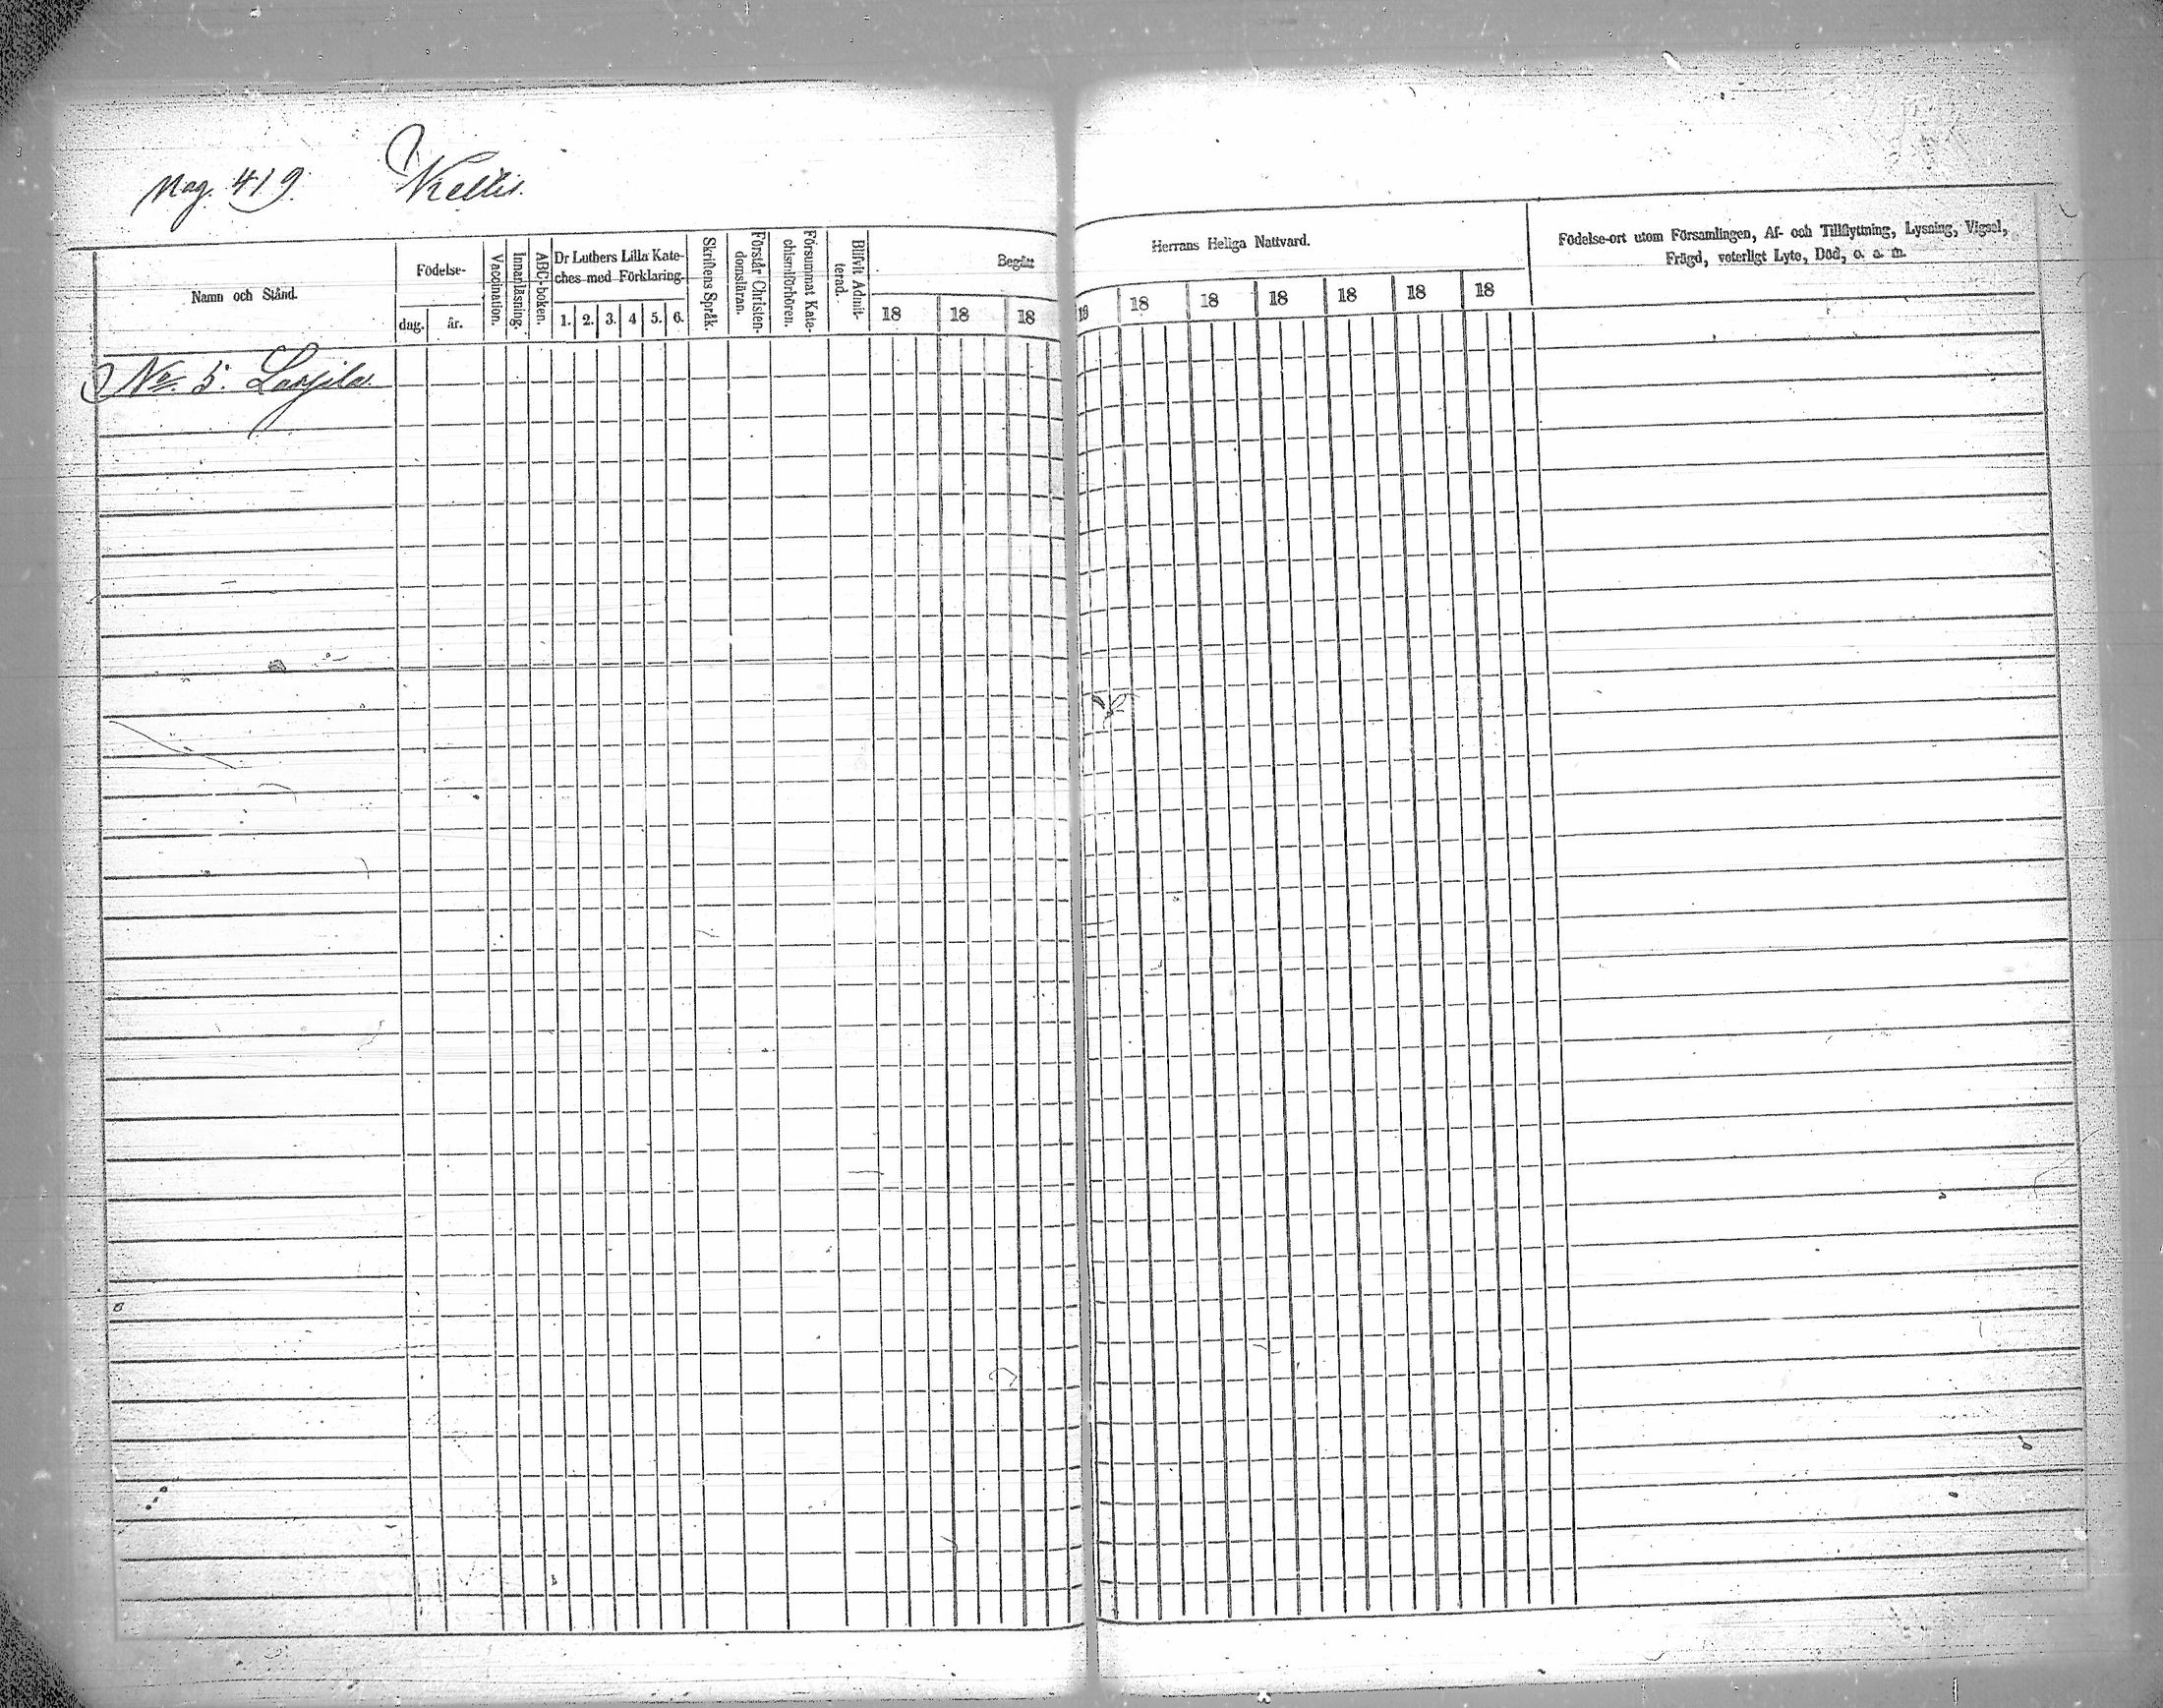 Pag. 419. Kellis.
Namn och Stånd.
Födelse-
dag.
år.
Vaccination.
Innanläsning.
ABC-boken.
Dr Luthers Lilla Kate-
ches med Förklaring.
1. 2. 3. 4 5. 6.
Skriftens Språk.
Förstår Christen-
domsläran.
Försummat Kate-
chismiförhören.
Blifvit Admit-
terad.
Begått
18 18 18
Herrans Heliga Nattvard.
18 18 18 18 18 18 18
Födelse-ort utom Församlingen, Af- och Tillflyttning, Lysning, Vigsel,
Frägd, veterligt Lyte, Död, o. a. m.
No. 5. Laxjila.